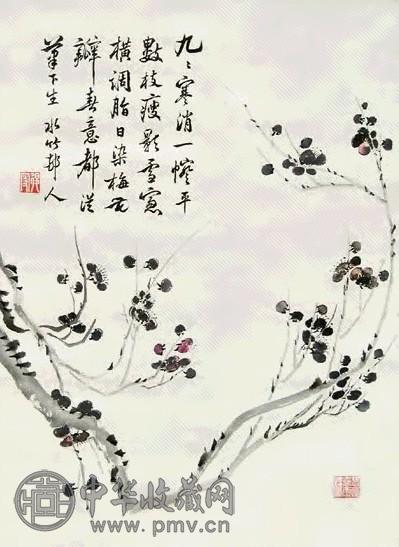 九〻寒消一平
數枝瘦影雪窗
橫調脂日染梅花
瓣春意都從
筆下生 水竹邨人
中华收藏网
www.pmv.cn